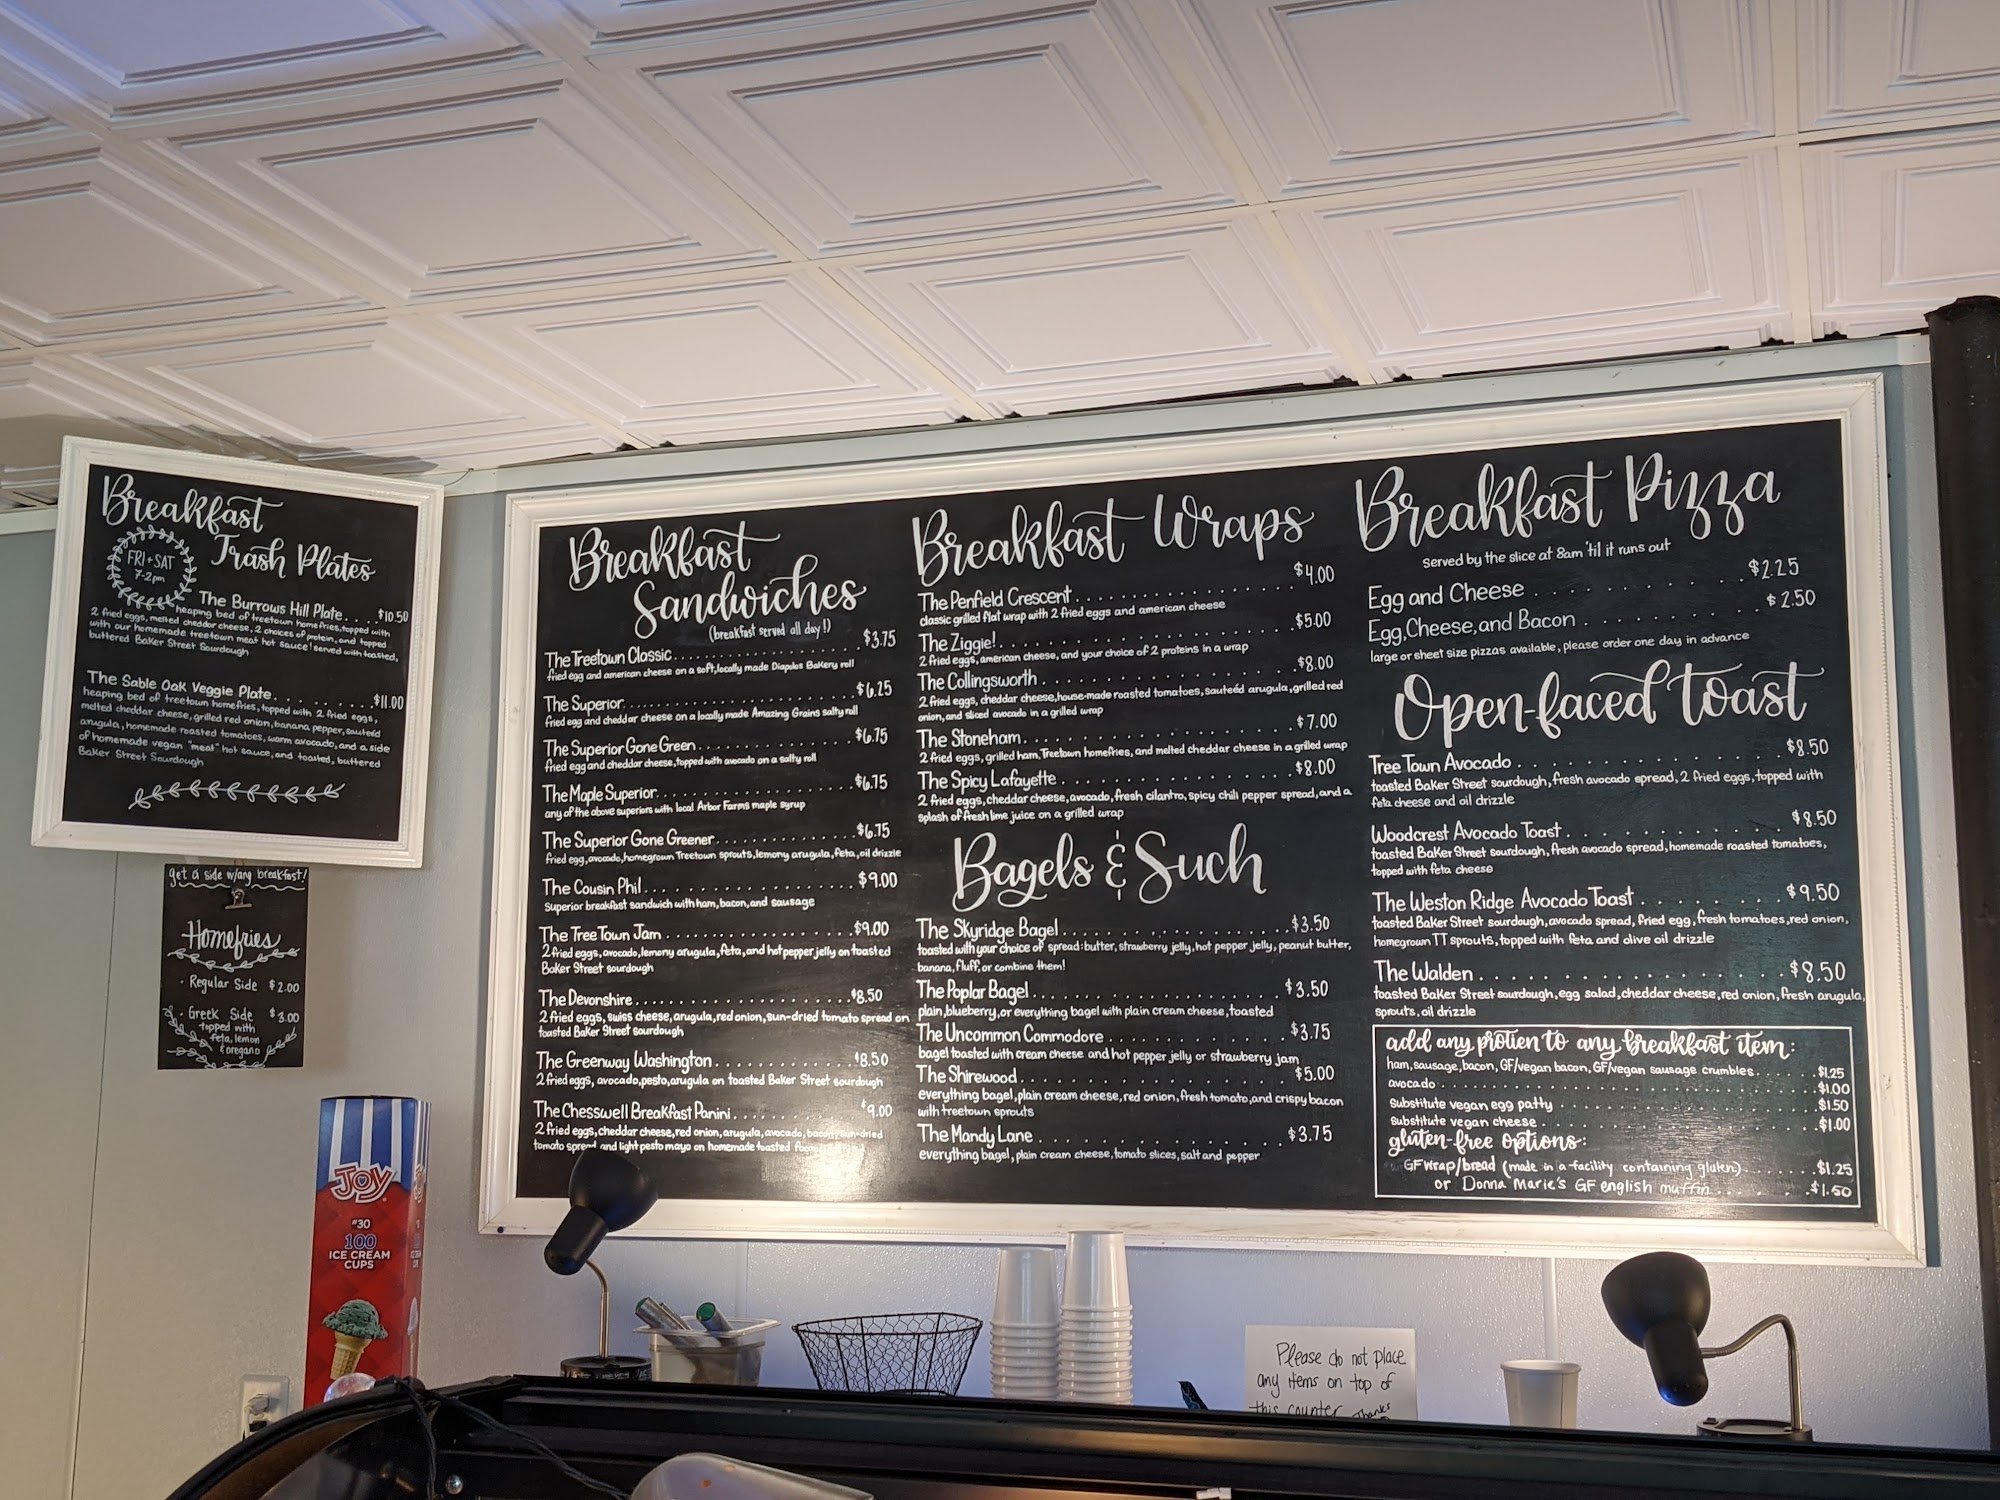 Breakfast
Trash Plates
FRI + SAT
7-2pm
The Burrows Hill Plate.... $10.50
heaping bed of treetown homefries, topped with
2 fried eggs, melted cheddar cheese, 2 choices of protein, and topped
with our homemade treetown meat hot sauce! served with toasted,
buttered Baker Street Sourdough
The Sable Oak Veggie Plate........ $11.00
heaping bed of treetown homefries, topped with 2 fried eggs,
melted cheddar cheese, grilled red onion, banana pepper, sauteéd
arugula, homemade roasted tomatoes, warm avocado, and a side
of homemade vegan "meat" hot sauce, and toasted, buttered
Baker Street Sourdough
get a side w/any breakfast!
Homefries
· Regular Side $2.00
· Greek Side $3.00
topped with
feta, lemon
& oregano
Breakfast
Sandwiches
(breakfast served all day!)
The Treetown Classic.................. $3.75
fried egg and american cheese on a soft, locally made Diapolos Bakery roll
The Superior...................... $6.25
fried egg and cheddar cheese on a locally made Amazing Grains salty roll
The Superior Gone Green................ $6.75
fried egg and cheddar cheese, topped with avocado on a salty roll
The Maple Superior................... $6.75
any of the above superiors with local Arbor Farms maple syrup
The Superior Gone Greener.............. $6.75
fried egg, avocado, homegrown Treetown sprouts, lemony arugula, feta, oil drizzle
The Cousin Phil..................... $9.00
superior breakfast sandwich with ham, bacon, and sausage
The Tree Town Jam................... $9.00
2 fried eggs, avocado, lemony arugula, feta, and hot pepper jelly on toasted
Baker Street sourdough
The Devonshire...................... $8.50
2 fried eggs, swiss cheese, arugula, red onion, sun-dried tomato spread on
toasted Baker Street sourdough
The Greenway Washington.............. $8.50
2 fried eggs, avocado, pesto, arugula on toasted Baker Street sourdough
The Chesswell Breakfast Panini............ $9.00
2 fried eggs, cheddar cheese, red onion, arugula, avocado, bacon, sun-dried
tomato spread and light pesto mayo on homemade toasted
Breakfast Wraps
The Penfield Crescent.................. $4.00
classic grilled flat wrap with 2 fried eggs and american cheese
The Ziggie!........................ $5.00
2 fried eggs, american cheese, and your choice of 2 proteins in a wrap
The Collingsworth.................... $8.00
2 fried eggs, cheddar cheese, house-made roasted tomatoes, sauteéd arugula, grilled red
onion, and sliced avocado in a grilled wrap
The Stoneham...................... $7.00
2 fried eggs, grilled ham, Treetown homefries, and melted cheddar cheese in a grilled wrap
The Spicy Lafayette.................. $8.00
2 fried eggs, cheddar cheese, avocado, fresh cilantro, spicy chili pepper spread, and a
splash of fresh lime juice on a grilled wrap
Bagels & Such
The Skyridge Bagel................... $3.50
toasted with your choice of spread: butter, strawberry jelly, hot pepper jelly, peanut butter,
banana, fluff, or combine them!
The Poplar Bagel.................... $3.50
plain, blueberry, or everything bagel with plain cream cheese, toasted
The Uncommon Commodore............. $3.75
bagel toasted with cream cheese and hot pepper jelly or strawberry jam
The Shirewood..................... $5.00
everything bagel, plain cream cheese, red onion, fresh tomato, and crispy bacon
with treetown sprouts
The Mandy Lane.................... $3.75
everything bagel, plain cream cheese, tomato slices, salt and pepper
Breakfast Pizza
Served by the slice at 8am 'til it runs out
Egg and Cheese............ $2.25
Egg, Cheese, and Bacon.......... $2.50
large or sheet size pizzas available, please order one day in advance
Open-faced Toast
Tree Town Avocado................ $8.50
toasted Baker Street sourdough, fresh avocado spread, 2 fried eggs, topped with
feta cheese and oil drizzle
Woodcrest Avocado Toast............. $8.50
toasted Baker Street sourdough, fresh avocado spread, homemade roasted tomatoes,
topped with feta cheese
The Weston Ridge Avocado Toast......... $9.50
toasted Baker Street sourdough, avocado spread, fried egg, fresh tomatoes, red onion,
homegrown TT sprouts, topped with feta and olive oil drizzle
The Walden................... $8.50
toasted Baker Street sourdough, egg salad, cheddar cheese, red onion, fresh arugula,
sprouts, oil drizzle
add any protien to any breakfast item:
ham, sausage, bacon, GF/vegan bacon, GF/vegan sausage crumbles....... $1.25
avocado........................ $1.00
substitute vegan egg patty............... $1.50
substitute vegan cheese................ $1.00
gluten-free options:
GF wrap/bread (made in a facility containing gluten)....... $1.25
or Donna Marie's GF english muffin....... $1.50
JOY
#30
100
ICE CREAM
CUPS
Please do not place
any items on top of
this counter Thanks